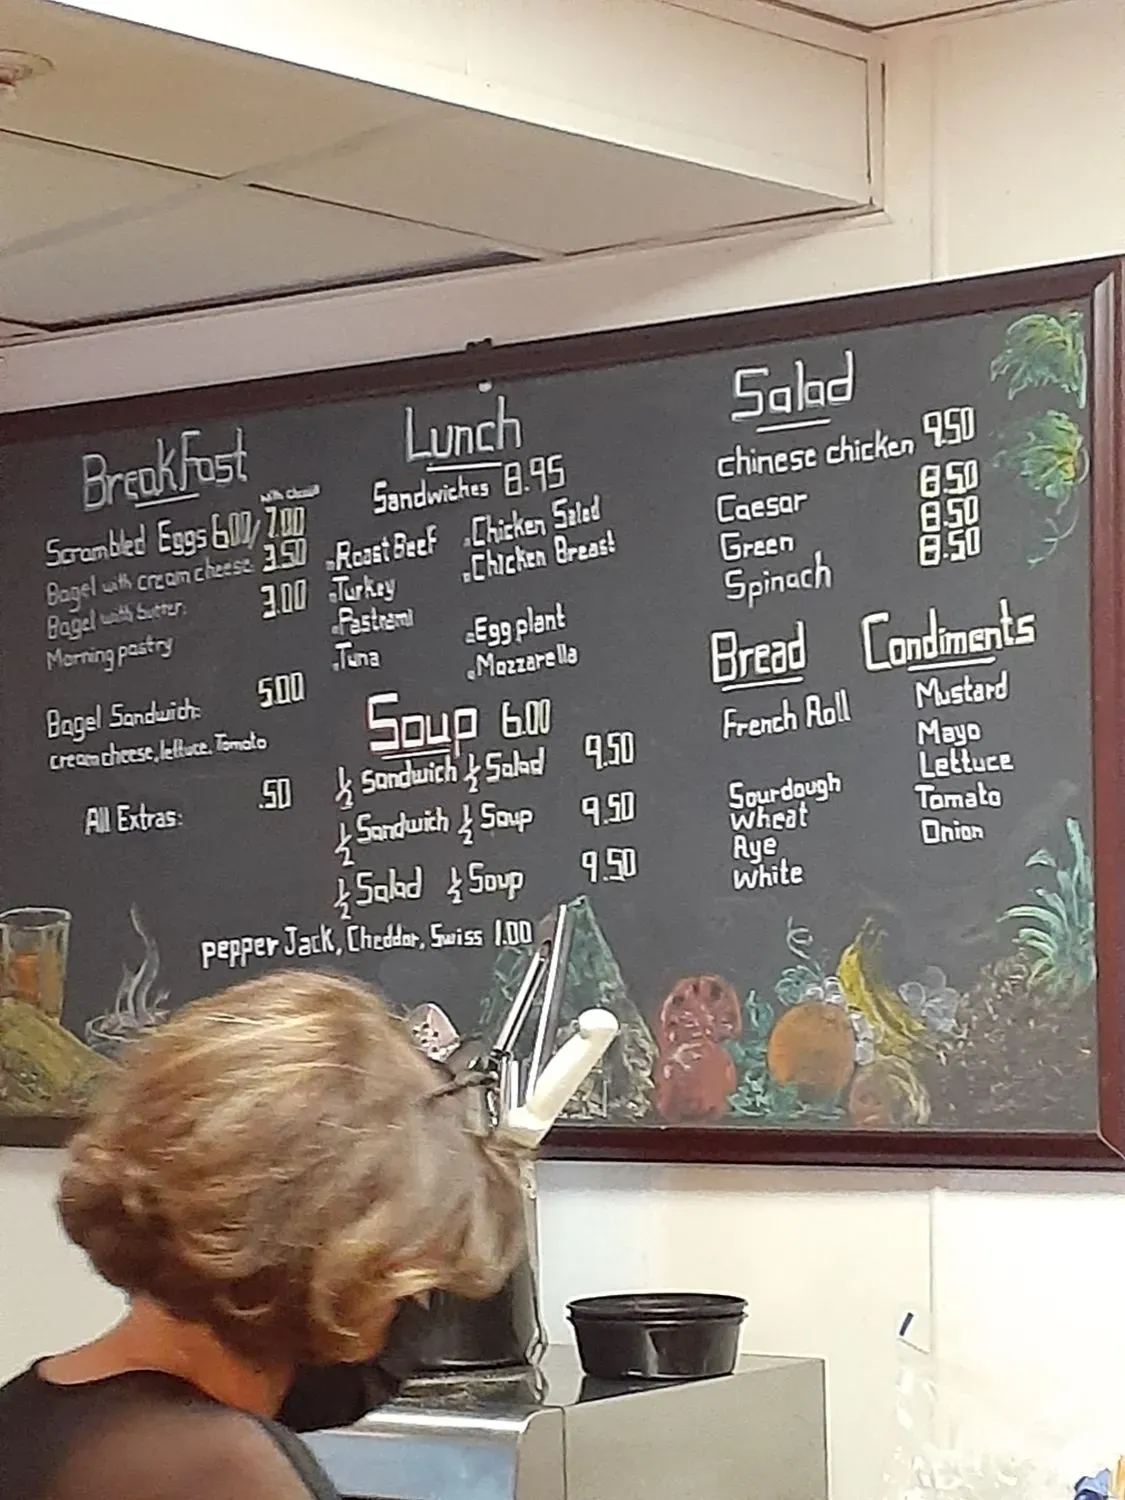 BreakFast
with cheese
Scrambled Eggs 6.00/7.00
Bagel with cream cheese: 3.50
Bagel with butter: 3.00
Morning pastry
Bagel Sandwich: 5.00
cream cheese, lettuce, Tomato
All Extras: .50
Lunch
Sandwiches 8.95
Roast Beef
Turkey
Pastrami
Tuna
Chicken Salad
Chicken Breast
Egg plant
Mozzarella
Soup 6.00
½ Sandwich ½ Salad 9.50
½ Sandwich ½ Soup 9.50
½ Salad ½ Soup 9.50
pepper Jack, Cheddar, Swiss 1.00
Salad
chinese chicken 9.50
Caesar 8.50
Green 8.50
Spinach 8.50
Bread
French Roll
Sourdough
wheat
Rye
White
Condiments
Mustard
Mayo
Lettuce
Tomato
Onion